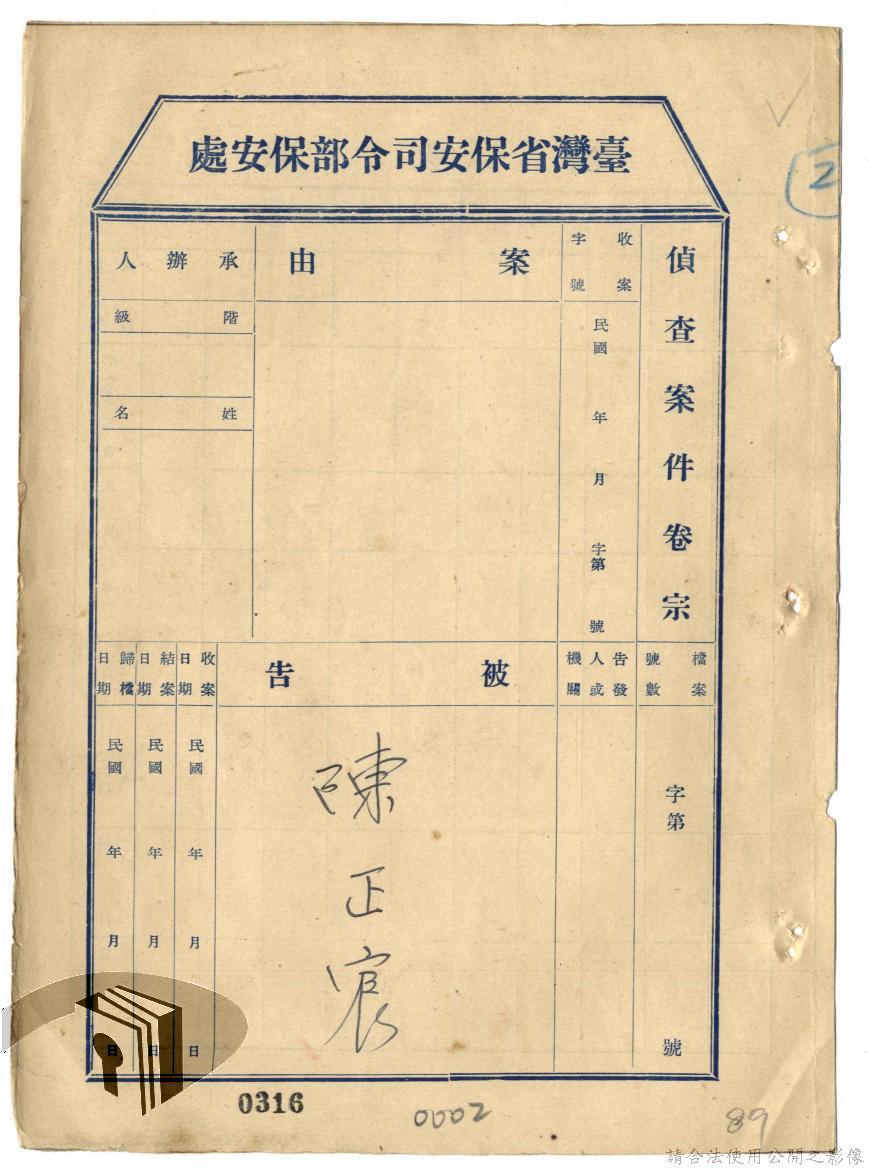 臺灣省保安司令部保安處
2
偵查案件卷宗
收案字號
民國 年 月 字第 號
案由
承辦人
階級
姓名
檔案號數
字第 號
告發人或機關
被告
陳正宸
收案日期
民國 年 月 日
結案日期
民國 年 月 日
歸檔日期
民國 年 月 日
0316
0002
89
請合法使用公開之影像